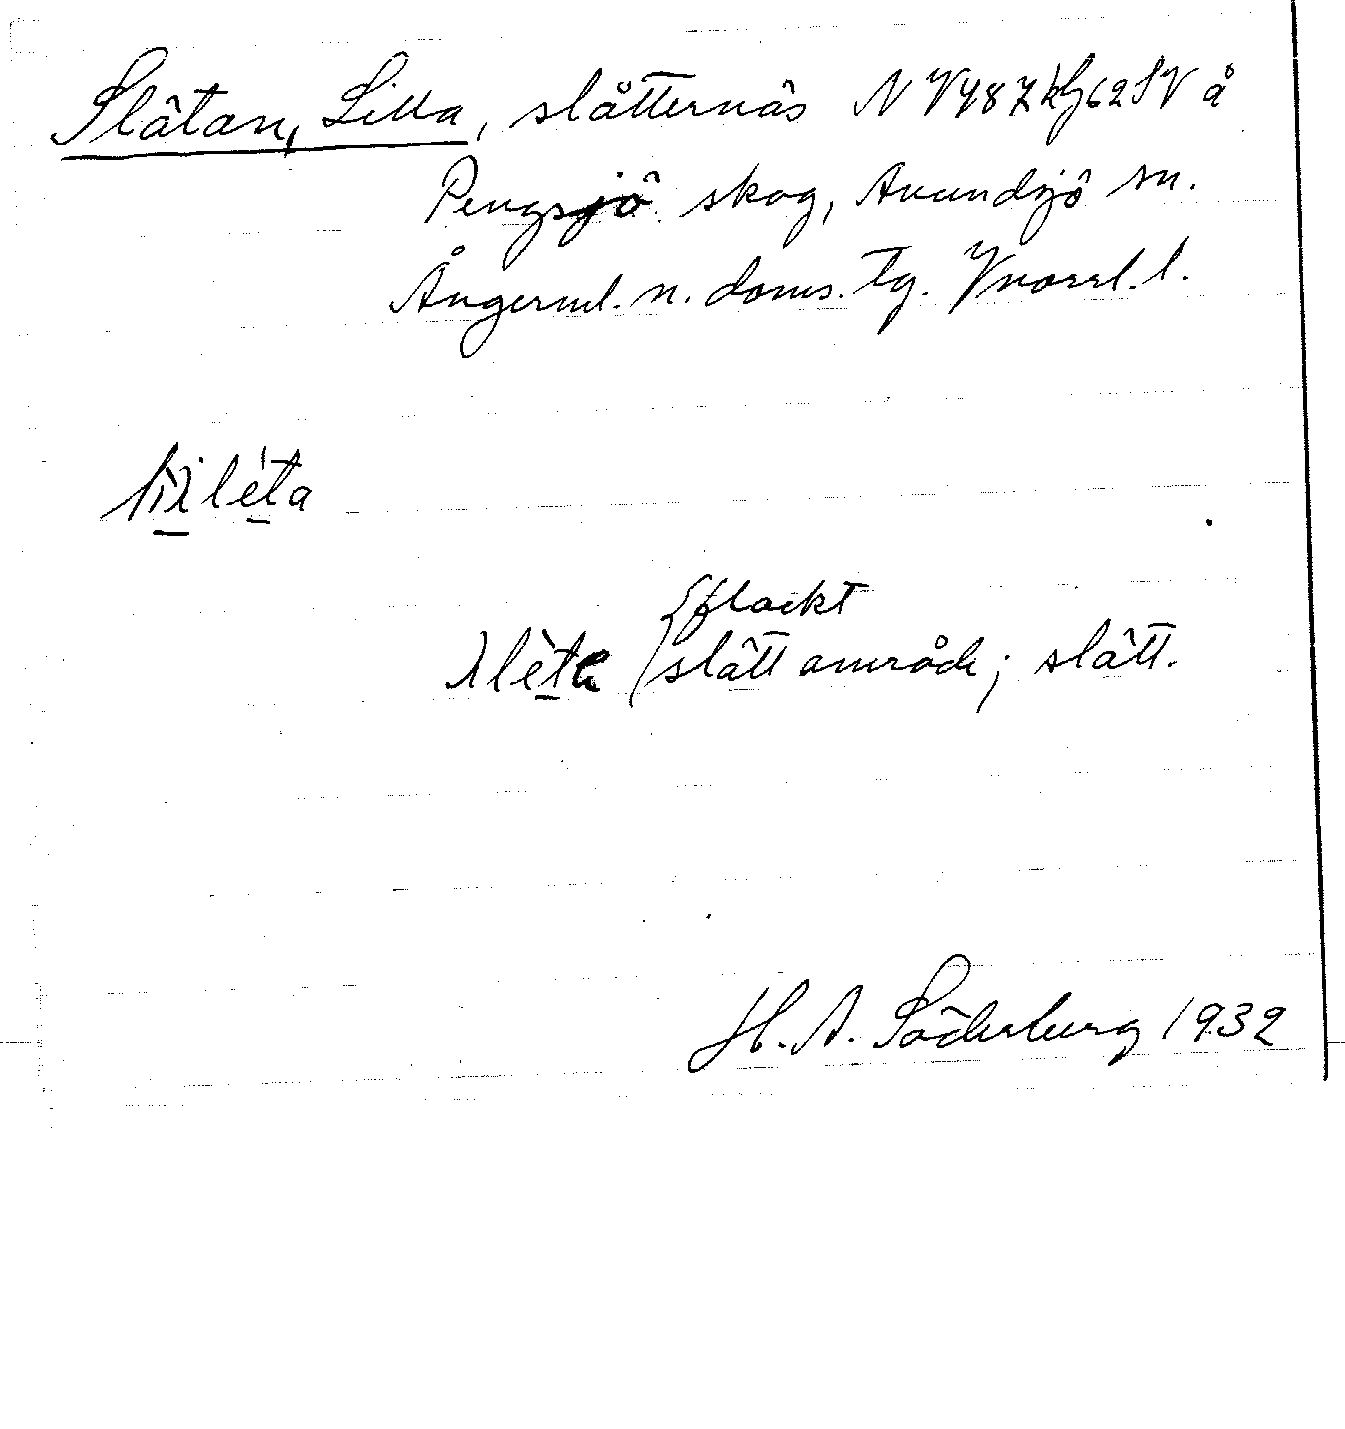 Slätan, Lilla, slåtternäs NV487kG62SV å
Pengsjö skog, Anundsjö sn.
Ångerml. n. doms. Tg. Vnorrl. l.
flackt
slätt område; slätt.
H. A. Söderberg 1932